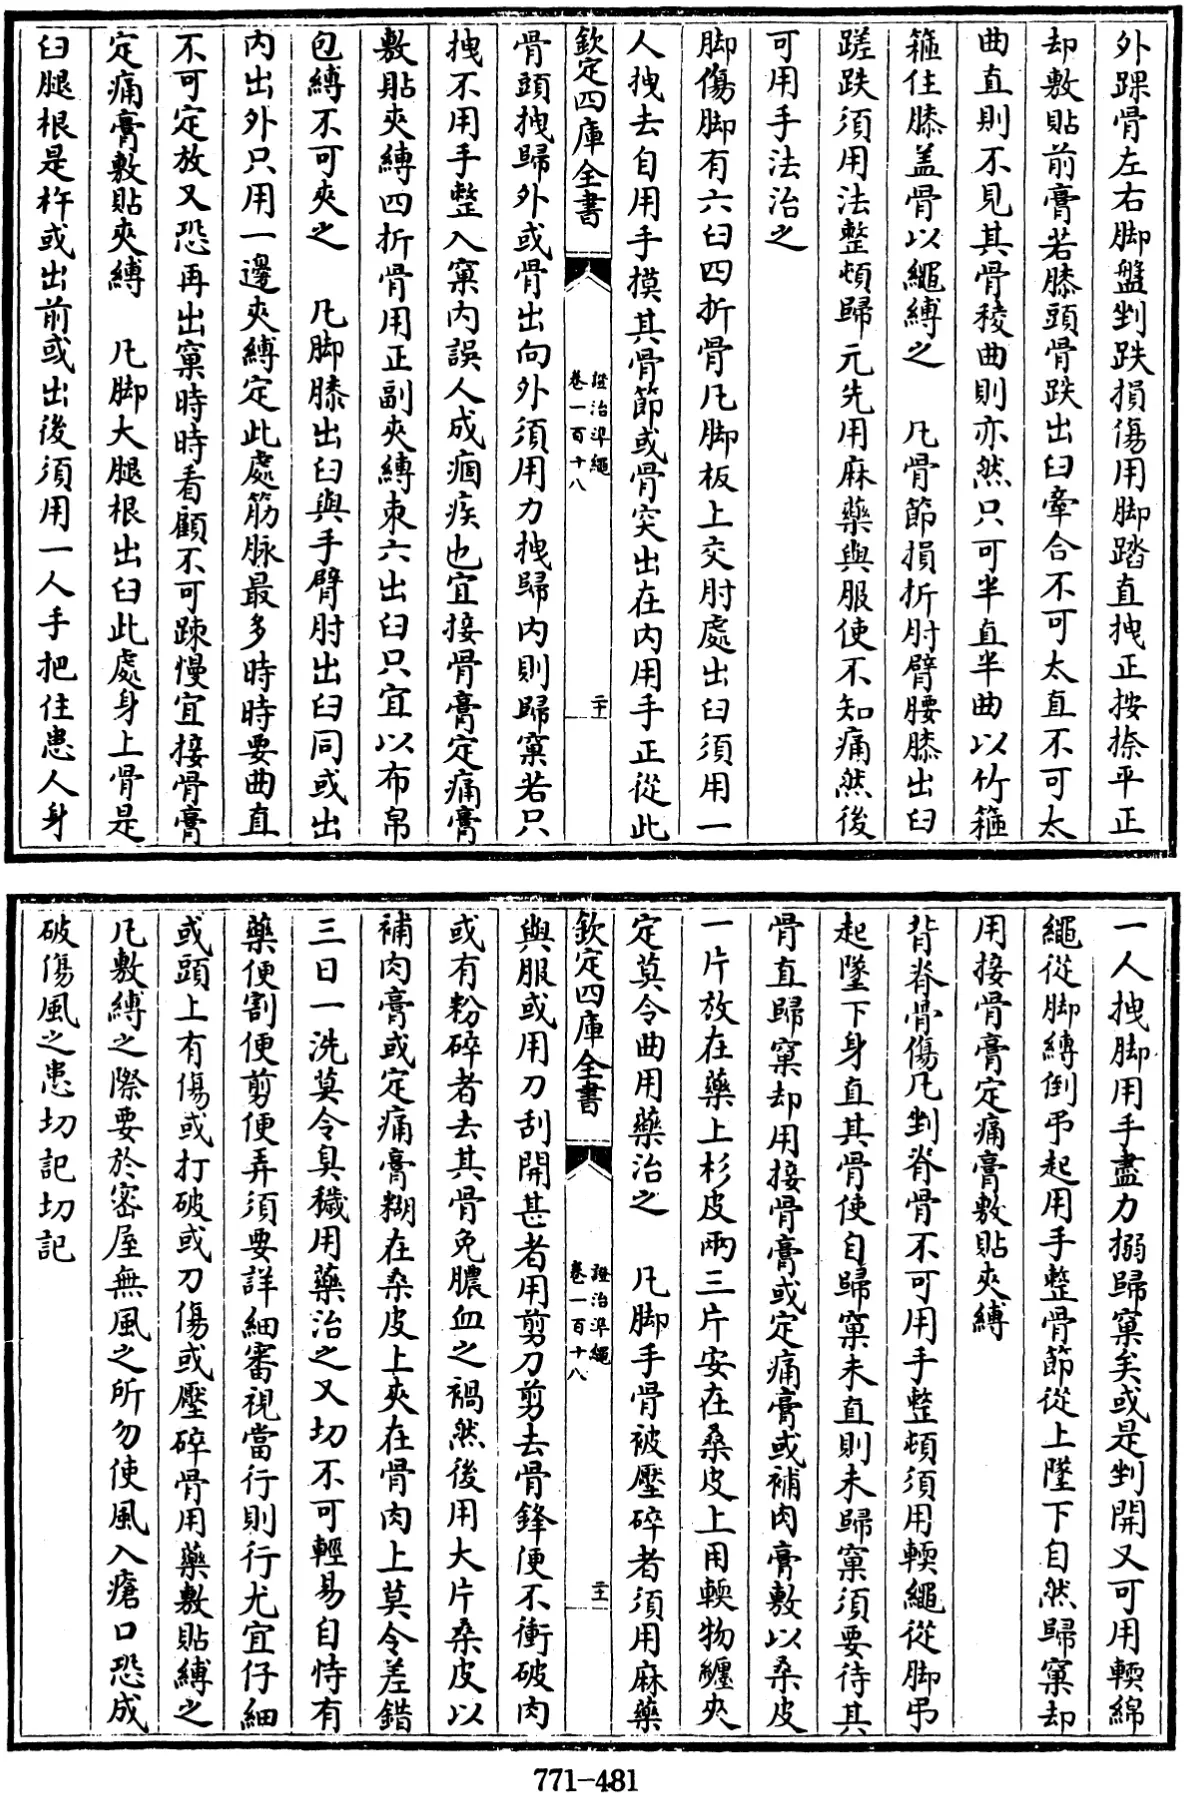 外踝骨左右脚盤剉跌損傷用脚踏直拽正按捺平正
却敷貼前膏若膝頭骨跌出臼牽合不可太直不可太
曲直則不見其骨稜曲則亦然只可半直半曲以竹箍
箍住膝盖骨以繩縛之　凡骨節損折肘臂腰膝出臼
蹉跌須用法整頓歸元先用麻藥與服使不知痛然後
可用手法治之
脚傷脚有六臼四折骨凡脚板上交肘處出臼須用一
人拽去自用手摸其骨節或骨突出在内用手正從此
欽定四庫全書
證治準繩
卷一百十八
二十
骨頭拽歸外或骨出向外須用力拽歸内則歸窠若只
拽不用手整入窠内誤人成痼疾也宜接骨膏定痛膏
敷貼夾縛四折骨用正副夾縛束六出臼只宜以布帛
包縛不可夾之　凡脚膝出臼與手臂肘出臼同或出
内出外只用一邊夾縛定此處筋脉最多時時要曲直
不可定放又恐再出窠時時看顧不可踈慢宜接骨膏
定痛膏敷貼夾縛　凡脚大腿根出臼此處身上骨是
臼腿根是杵或出前或出後須用一人手把住患人身
一人拽脚用手盡力搦歸窠矣或是剉開又可用輭綿
繩從脚縛倒吊起用手整骨節從上墜下自然歸窠却
用接骨膏定痛膏敷貼夾縛
背脊骨傷凡剉脊骨不可用手整頓須用輭繩從脚吊
起墜下身直其骨使自歸窠未直則未歸窠須要待其
骨直歸窠却用接骨膏或定痛膏或補肉膏敷以桑皮
一片放在藥上杉皮兩三片安在桑皮上用輭物纏夾
定莫令曲用藥治之　凡脚手骨被壓碎者須用麻藥
欽定四庫全書
證治準繩
卷一百十八
二十一
與服或用刀刮開甚者用剪刀剪去骨鋒便不衝破肉
或有粉碎者去其骨免膿血之禍然後用大片桑皮以
補肉膏或定痛膏糊在桑皮上夾在骨肉上莫令差錯
三日一洗莫令臭穢用藥治之又切不可輕易自恃有
藥便割便剪便弄須要詳細審視當行則行尤宜仔細
或頭上有傷或打破或刀傷或壓碎骨用藥敷貼縛之
凡敷縛之際要於密屋無風之所勿使風入瘡口恐成
破傷風之患切記切記
771-481